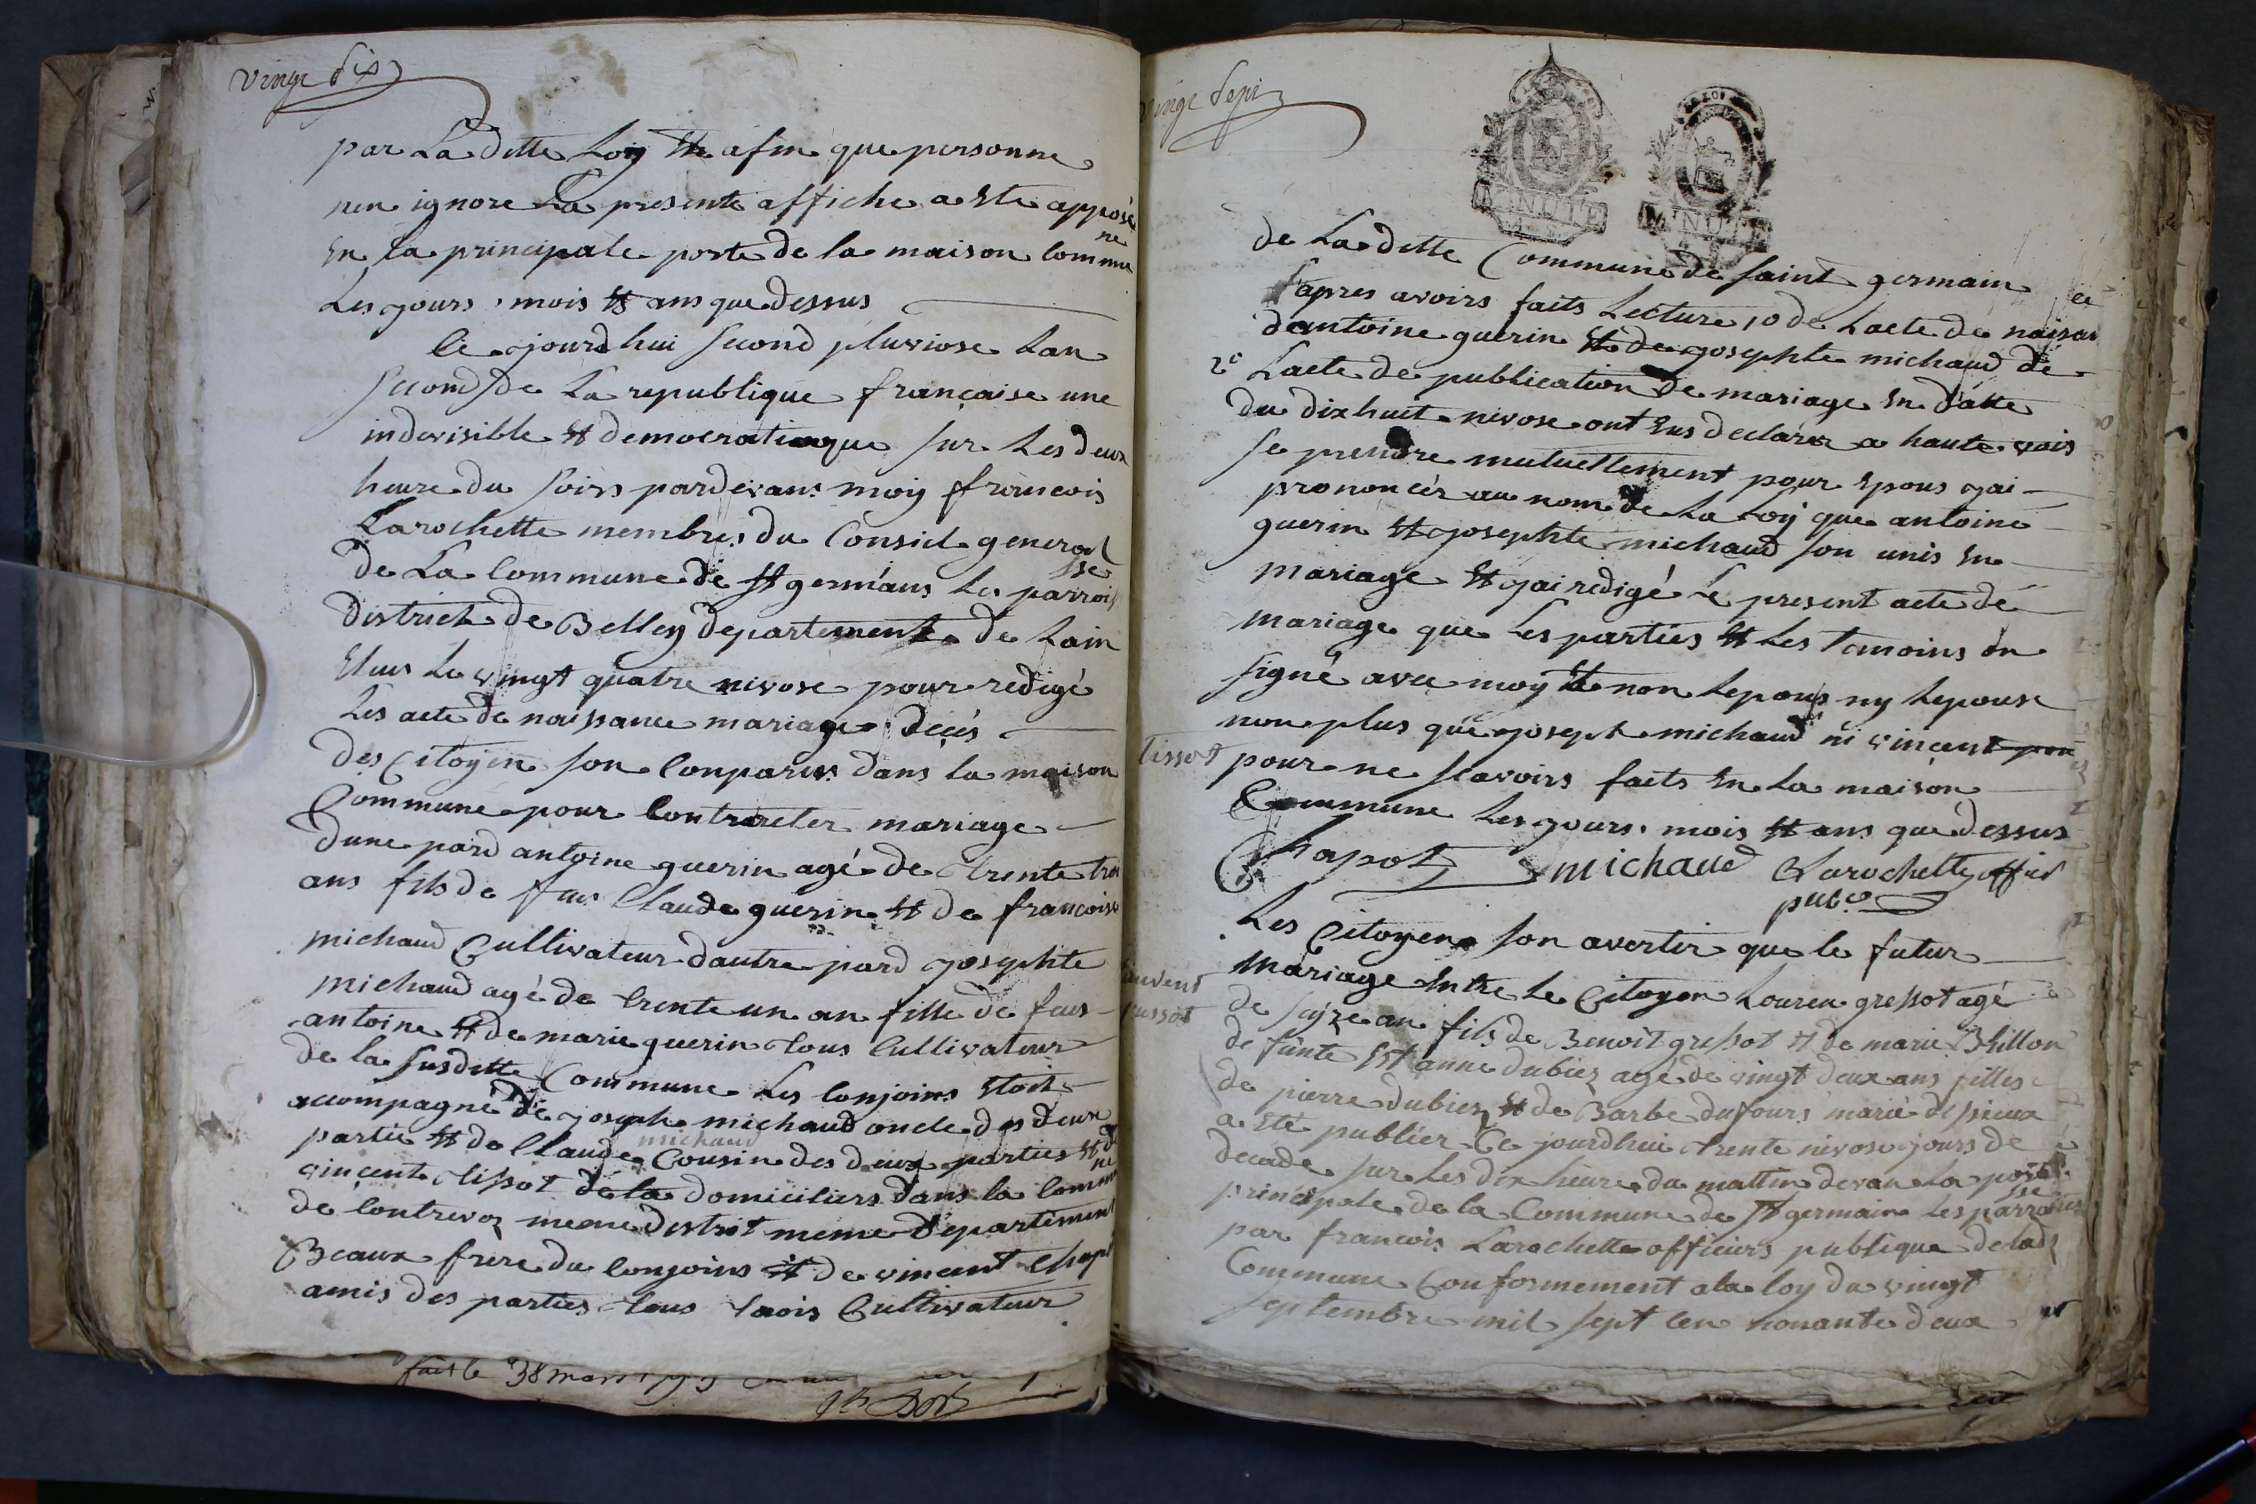 vingt six
par La ditte Loiy et afin que personne
nen ignore La presente affiche a ete apposé
En la principale porte de la maison commune
Les jours, mois et ans que dessus
Ce jourd hui second pluviose Lan
second de La republique française une
indivisible et democratique sur Les deux
heure du soirs pardevans moiy ffrancois
Larochette membres du Consiel general
de La Commune de st germans Les parroisse
district de Belley departement de Lain
Elus Le vingt quatre nivose pour redigé
Les acte de naissance mariage decés
des Citoyen son Conparus dans la maison
Commune pour Contracter mariage
dune pard antoine guerin agé de trente trois
ans fils de feus Claude guerin et de francoise
michaud Cultivateur dautre pard josephte
michaud agé de trente un an fille de feus
antoine et de marie guerin tous Cultivateur
de la susditte Commune Les Conjoins Etoit
accompagné de joseph michaud oncle des deux
partie et de Claude michaud Cousin des deux parties et de
vincent tissot de la domiciliers dans la Commune
de Contrevoz meme distrit meme departement
Beaux frere du Conjoins et de vincent Chapot
amis des parties tous trois Cultivateur
fait le
vingt sept
MINUTE
LA LOI
MINUTE
de La ditte Commune de saint germain et
apres avoirs faits Lecture 1o de Lacte de naisan
dantoine guerin et de josephte michaud de
2e Lacte de publication de mariage En datte
du dixhuit nivose ont Eus declarer a haute vois
se prendre mutuellement pour Epous jai
prononcér au nom de La Loy que antoine
guerin et josephte michaud son unis En
mariage et jai redigé Le present acte de
mariage que Les parties et Les temoins on
signé avec moy et non Lepous ny Lepouse
non plus que joseph michaud ni vincent pou
tissot pour ne scavoirs faits En La maison
Commune Les jours, mois et ans que dessus
Chapot michaud Larochette offier
pubc
Les Citoyens son avertir que le futur
Mariage Entre Le Citoyen Louren gressot agé
de saize an fils de Benoit gressot et de marie Billon
defunte Et anne dubiez agé de vingt deux ans filles
de pierre dubiez et de Barbe dufours marié depieux
a Eté publiér Ce jourdhui trente nivose jours de
decade sur Les dix heure du mattin devan La porte
principale de la Commune de st germain Les parroisse
par francois Larochette officiers publique de lad
Commune Conformement a la loy du vingt
septembre mil sept Cen nonante deux